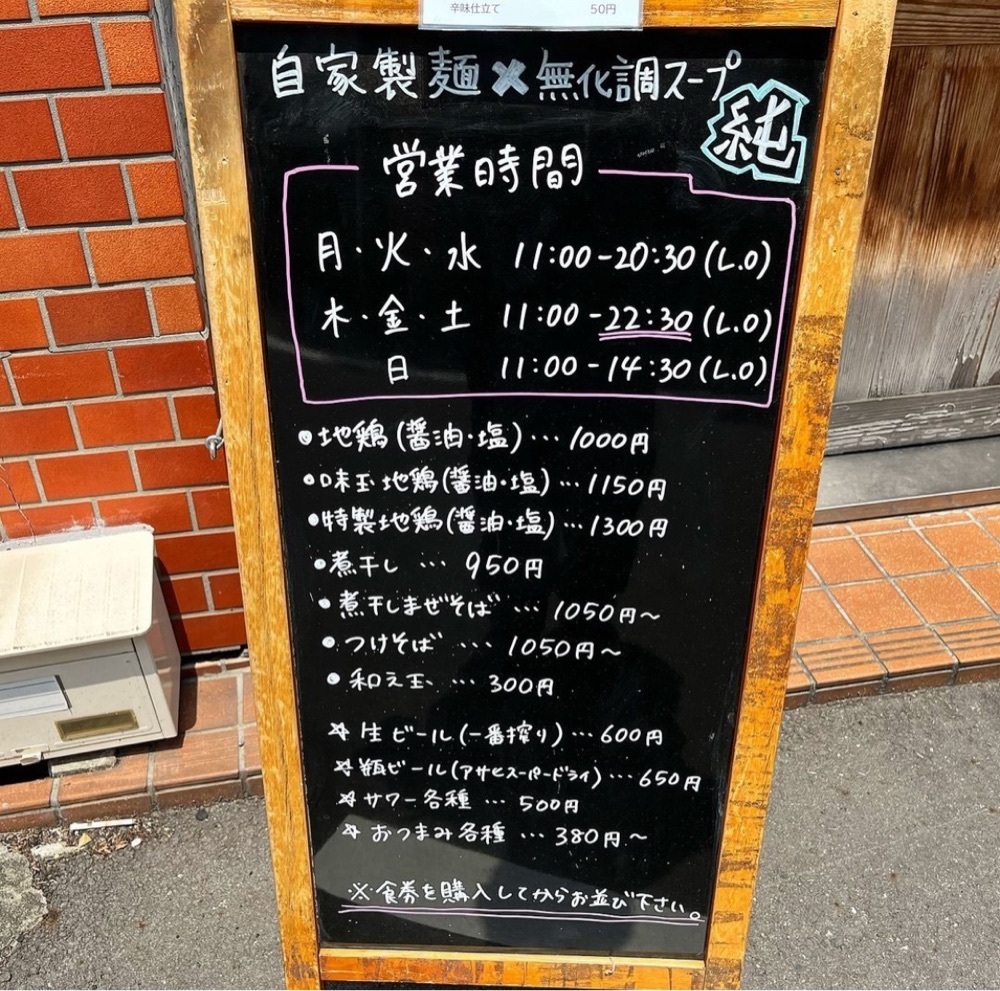 辛味仕立て 50円
自家製麺×無化調スープ
純
営業時間
月・火・水 11:00-20:30(L.O)
木・金・土 11:00-22:30(L.O)
日 11:00-14:30(L.O)
●地鶏(醤油・塩)…1000円
●味玉地鶏(醤油・塩)…1150円
●特製地鶏(醤油・塩)…1300円
●煮干し…950円
●煮干しまぜそば…1050円～
●つけそば…1050円～
●和え玉…300円
☆生ビール(一番搾り)…600円
☆瓶ビール(アサヒスーパードライ)…650円
☆サワー各種…500円
☆おつまみ各種…380円～
※食券を購入してからお並び下さい。